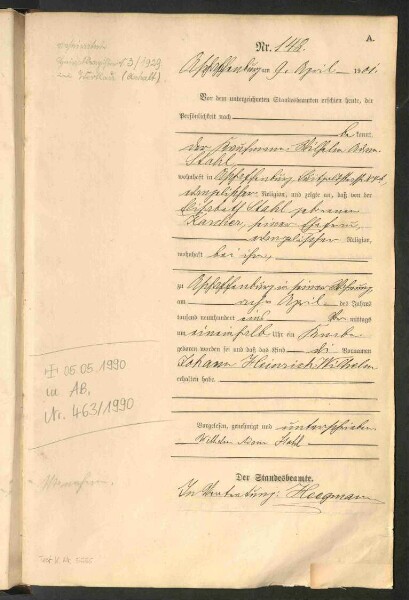 A.
Nr. 148.
Aschaffenburg am 9. April 1901.
Vor dem unterzeichneten Standesbeamten erschien heute, der
Persönlichkeit nach
be kannt,
der Kaufmann Wilhelm Adam
Stahl,
wohnhaft in Aschaffenburg
Religion, und zeigte an, daß von der
Elisabeth Stahl geborenen
Karcher, seiner Ehefrau,
Religion,
wohnhaft bei ihm,
zu Aschaffenburg in seiner Wohnung
am April des Jahres
tausend neunhundert eins mittags
um ein einhalb Uhr ein Knabe
geboren worden sei und daß das Kind die Vornamen
Johann Heinrich Wilhelm
erhalten habe.
Vorgelesen, genehmigt und unterschrieben
Wilhelm Adam Stahl
Der Standesbeamte.
In Vertretung: Hegmann
3/1929
(Anhalt)
05.05.1990
in AB,
Nr. 463/1990